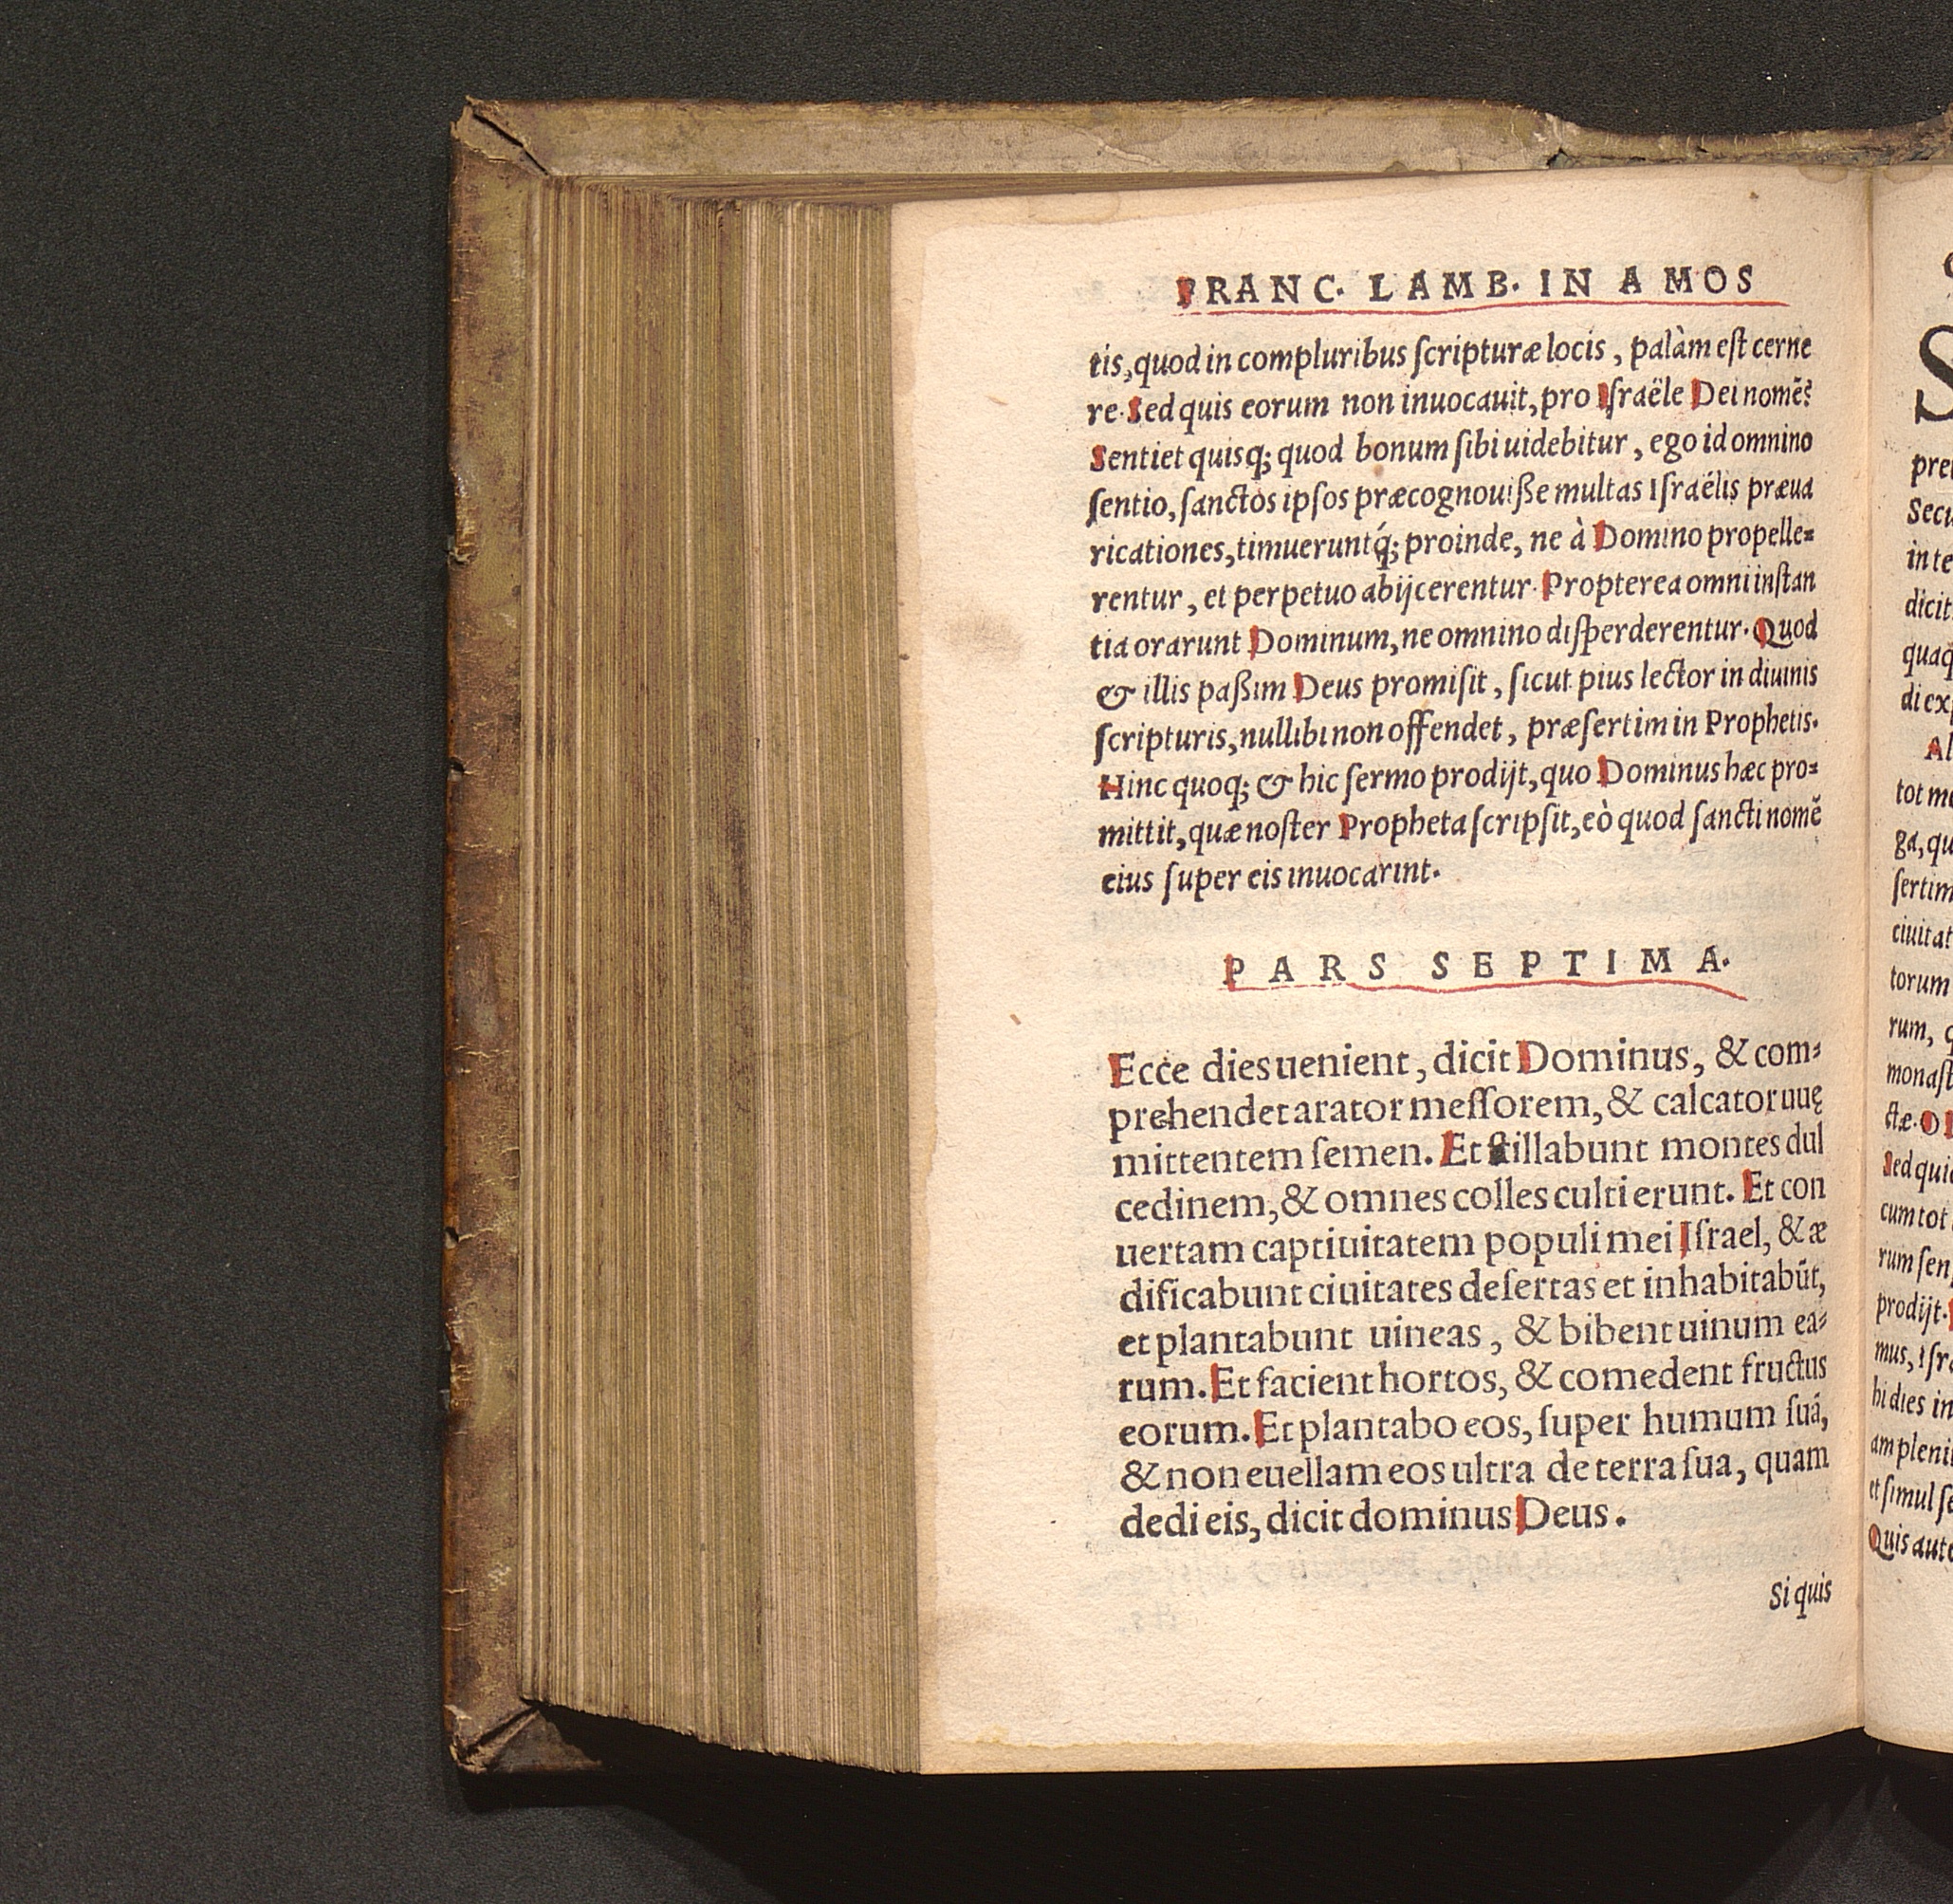 FRANC. LAMB. IN AMOS
tis, quod in compluribus ſcripturæ locis, palàm eſt cerne
re. Sed quis eorum non inuocauit, pro Iſraële Dei nomē?
Sentiet quisq; quod bonum ſibi uidebitur, ego id omnino
ſentio, ſanctos ipſos præcognouiſſe multas Iſraëlis præua
ricationes, timueruntq́; proinde, ne à Domino propelle=
rentur, et perpetuo abijcerentur. Propterea omni inſtan
tia orarunt Dominum, ne omnino diſperderentur. Quod
& illis paßim Deus promiſit, ſicut pius lector in diuinis
ſcripturis, nullibi non offendet, præſertim in Prophetis.
Hinc quoq; & hic ſermo prodijt, quo Dominus hæc pro=
mittit, quæ noſter Propheta ſcripſit, eò quod ſancti nomē
eius ſuper eis inuocarint.
PARS SEPTIMA.
Ecce dies uenient, dicit Dominus, & com=
prehendet arator meſſorem, & calcator uuę
mittentem ſemen. Et ſtillabunt montes dul
cedinem, & omnes colles culti erunt. Et con
uertam captiuitatem populi mei Iſrael, & æ
dificabunt ciuitates deſertas et inhabitabūt,
et plantabunt uineas, & bibent uinum ea=
rum. Et facient hortos, & comedent fructus
eorum. Et plantabo eos, ſuper humum ſuā,
& non euellam eos ultra de terra ſua, quam
dedi eis, dicit dominus Deus.
Si quis
S
pre
Secu
in te
dicit
quaq
di exp
Al
tot me
ga, qu
ſertim
ciuitat
torum
rum, q
monaſt
ctæ. O
Sed qui
cum tot
rum ſen
prodijt.
mus, Iſra
hi dies in
am pleni
et ſimul ſe
Quis aute